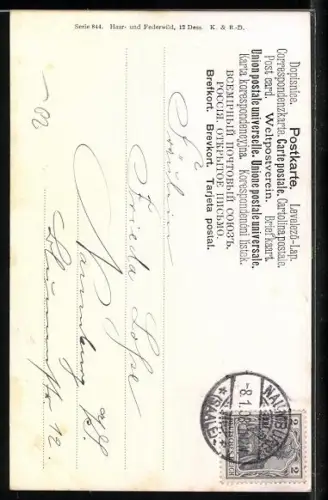 Serie 844. Haar- und Federwild, 12 Dess. K. & B.-D.
Dopisnice. Postkarte. Levelező-Lap.
Correspondenzkarte. Carte postale. Cartolina postale.
Post card. Weltpostverein. Briefkaart.
Union postale universelle. Unione postale universale.
Karta korespondencyjna. Korespondenční lístek.
ВСЕМІРНЫЙ ПОЧТОВЫЙ СОЮЗЪ.
РОССІЯ. ОТКРЫТОЕ ПИСЬМО.
Brefkort. Brevkort. Tarjeta postal.
Fräulein
Frieda
Naumburg a/S.
12.
NAUMBURG
(SAALE)
2
2